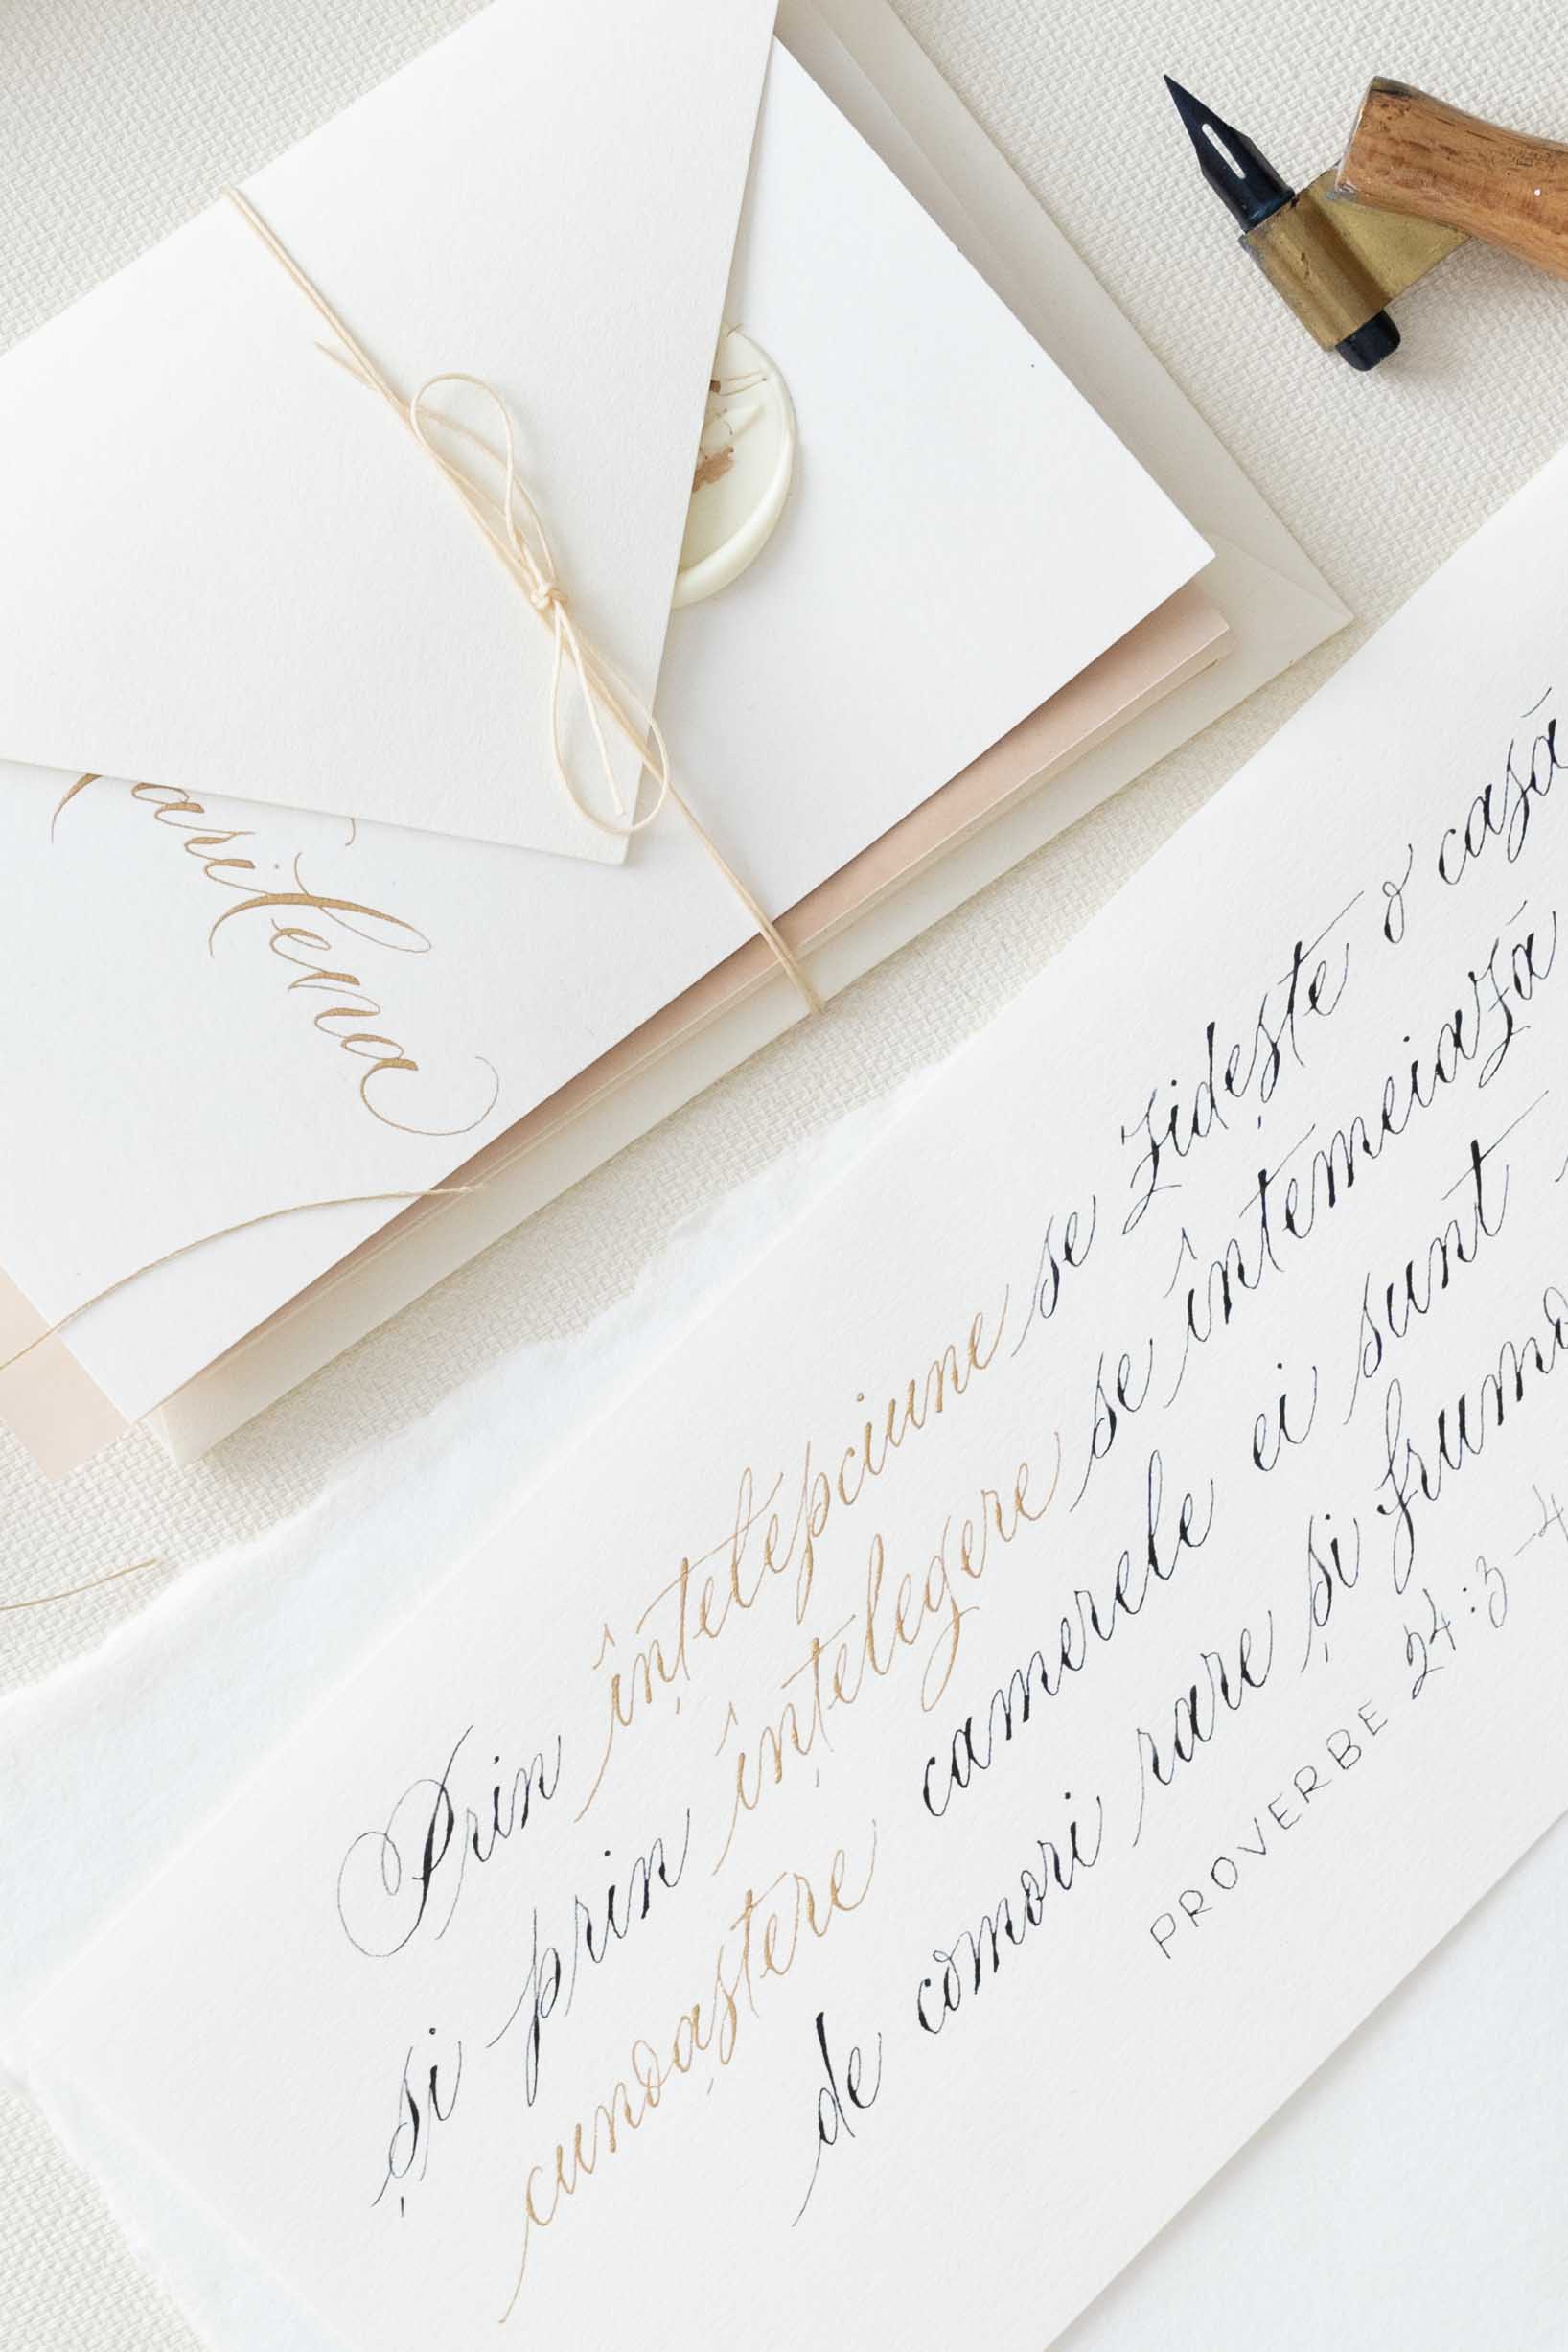 Prin înțelepciune se zidește o casă
și prin înțelegere se întemeiază
cunoaștere camerele ei sunt
de comori rare și
PROVERBE 24:3-4